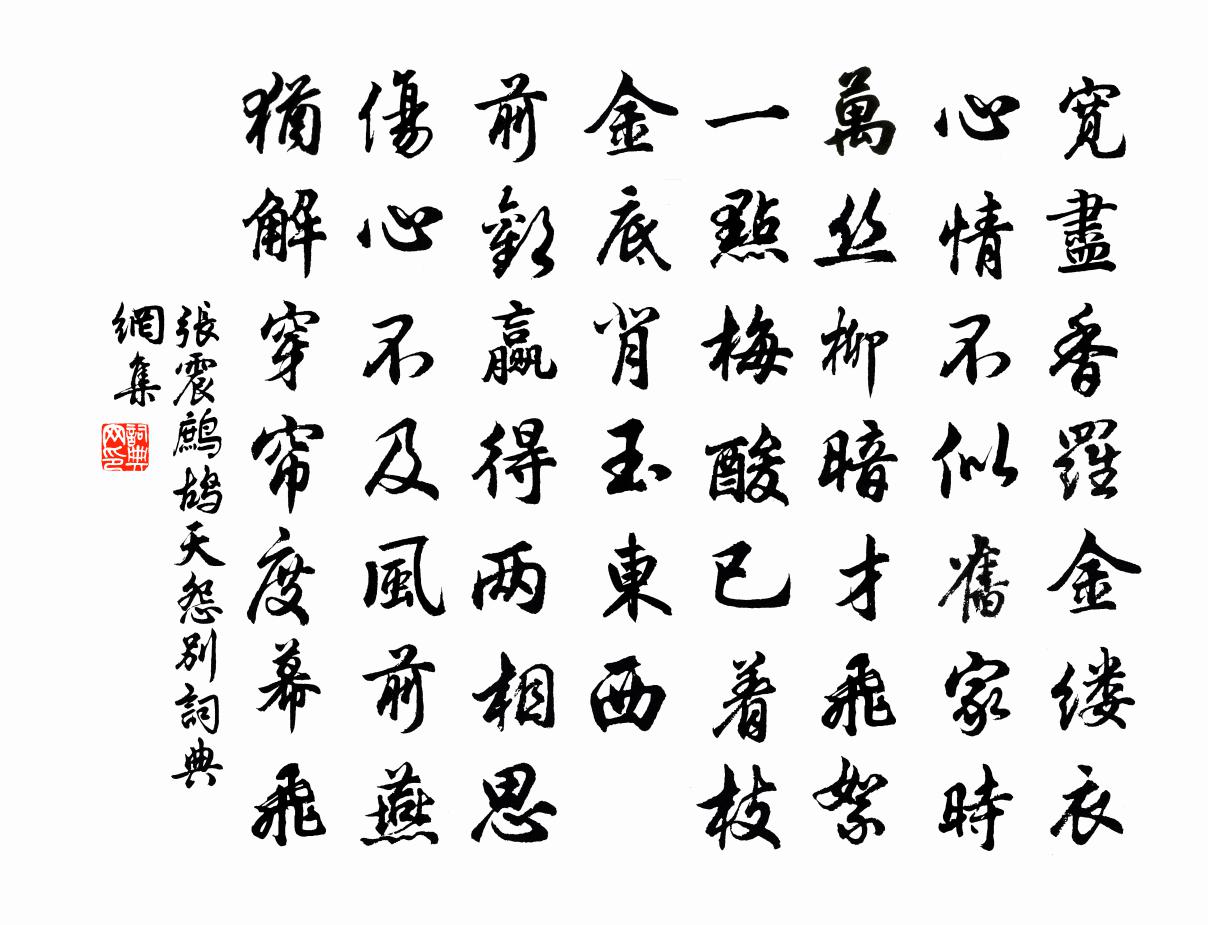 寬盡香羅金缕衣
心情不似舊家時
萬丝柳暗才飛絮
一點梅酸已着枝
金底背玉東西
前歡赢得两相思
傷心不及風前燕
猶解穿帘度幕飛
張震鷓鸪天怨别詞典
網集
詞典
网印